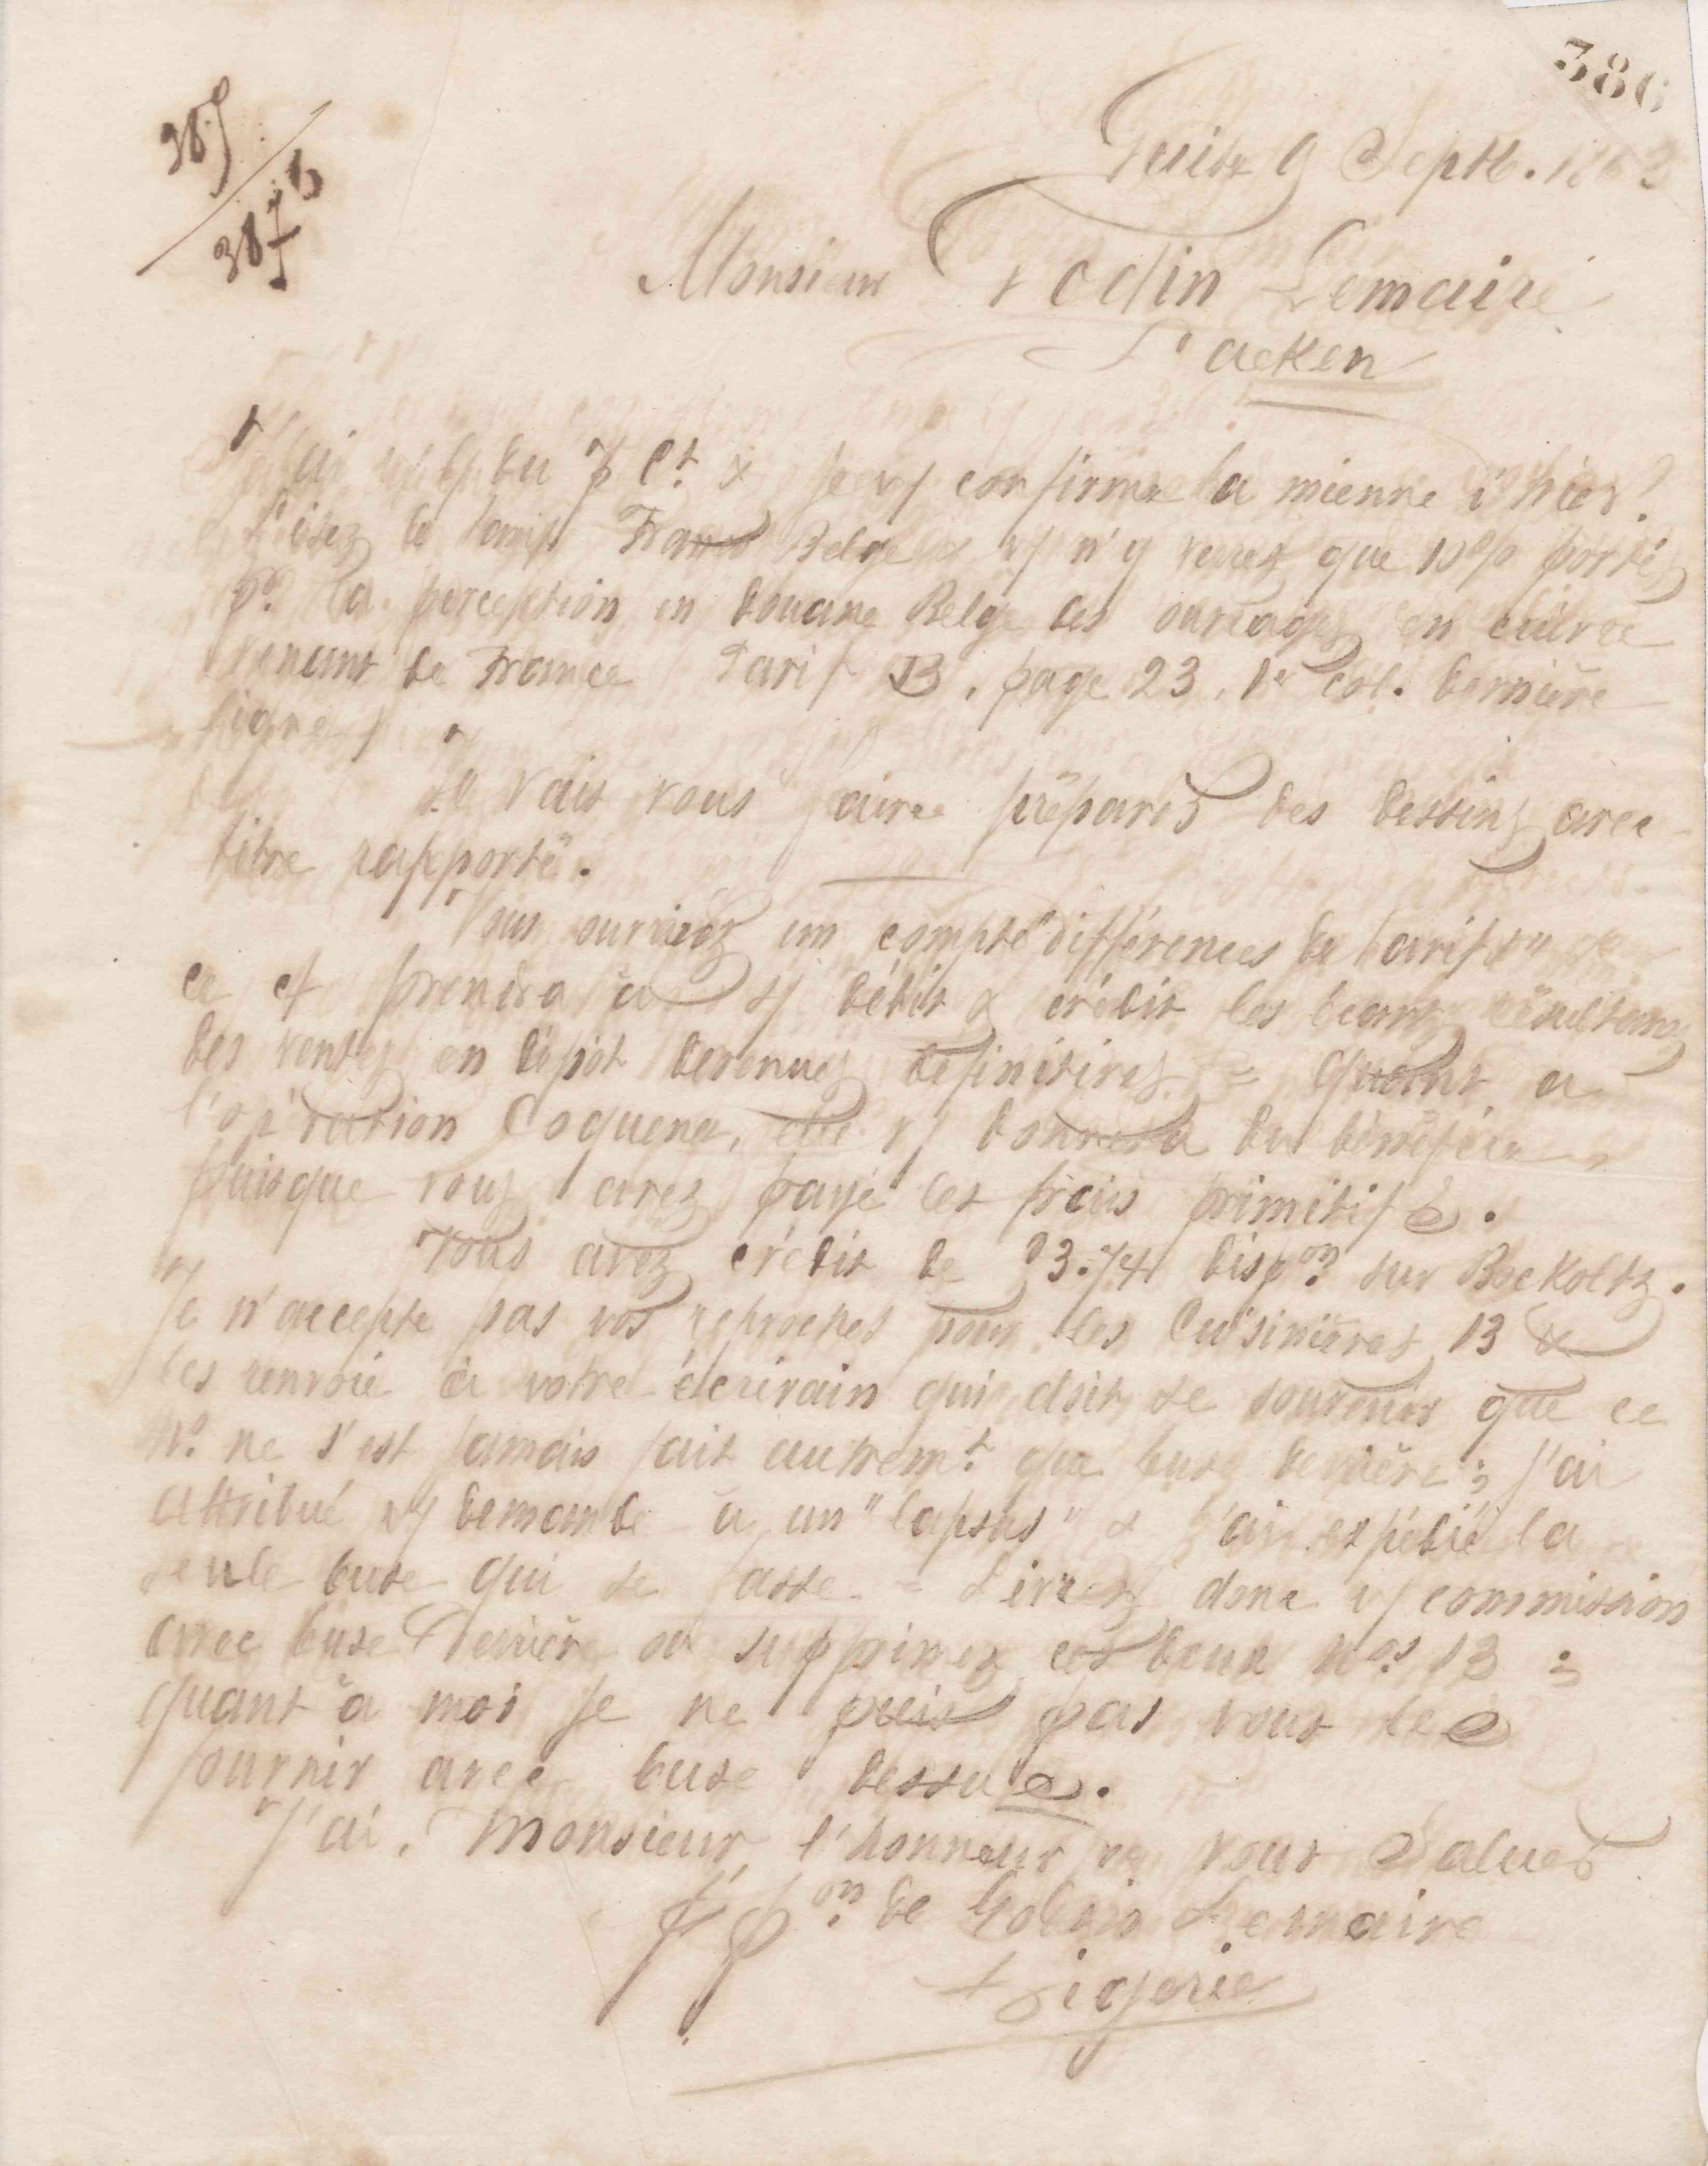 386
385
387 b
Guise 9 Septb. 1863
Monsieur Godin Lemaire
Laeken
J'ai v/ l/ du 7 Ct & je v/ confirme la mienne d'hier.
Lisez le tarif Franco Belge & v/ n'y verrez que 10% portés
pr la perception en douane Belge des ouvrages en cuivre
venant de France (Tarif B, page 23, 1e col. dernière
ligne)
Je vais vous faire préparer des dessins avec
titre rapporté.
Vous ouvrirez un compte "différences de tarifs"
ce ct prendra à s/ débit & crédit les écarts résultans
des ventes en dépôt devenues définitives = Quant a
l'opération Coquene, elle v/ donnera du bénéfice,
puisque vous avez payé les frais primitifs.
Vous avez crédit de 23.74 dispon sur Bockoltz.
Je n'accepte pas vos reproches pour les Cuisinières 13 &
les renvoie à votre écrivain qui doit se souvenir que ce
No ne s'est jamais fait autremt que buse derrière; j'ai
attribué v/ demande à un "lapsus" & j'ai expédié la
seule buse qui se fasse = Livrez donc v/ commission
avec buse derrière ou supprimez ces deux Nos 13;
quant à moi je ne puis pas vous les
fournir avec buse dessus.
J'ai, Monsieur, l'honneur de vous saluer
pr pon de Godin Lemaire
Rigerie